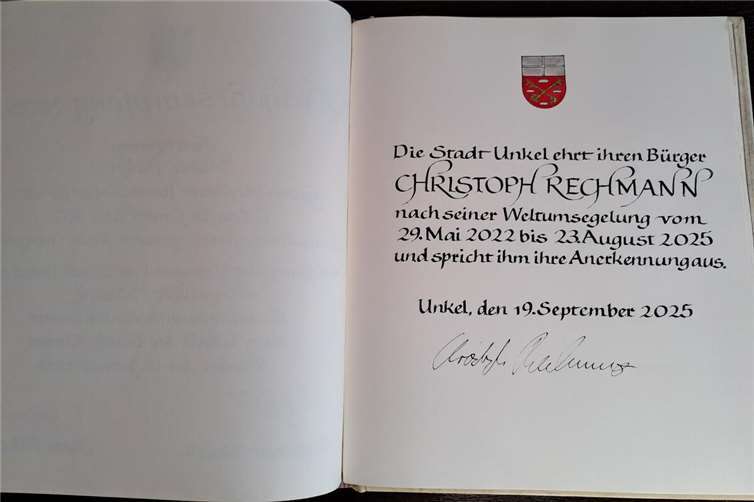 Die Stadt Unkel ehrt ihren Bürger
CHRISTOPH RECHMANN
nach seiner Weltumsegelung vom
29. Mai 2022 bis 23. August 2025
und spricht ihm ihre Anerkennung aus.
Unkel, den 19. September 2025